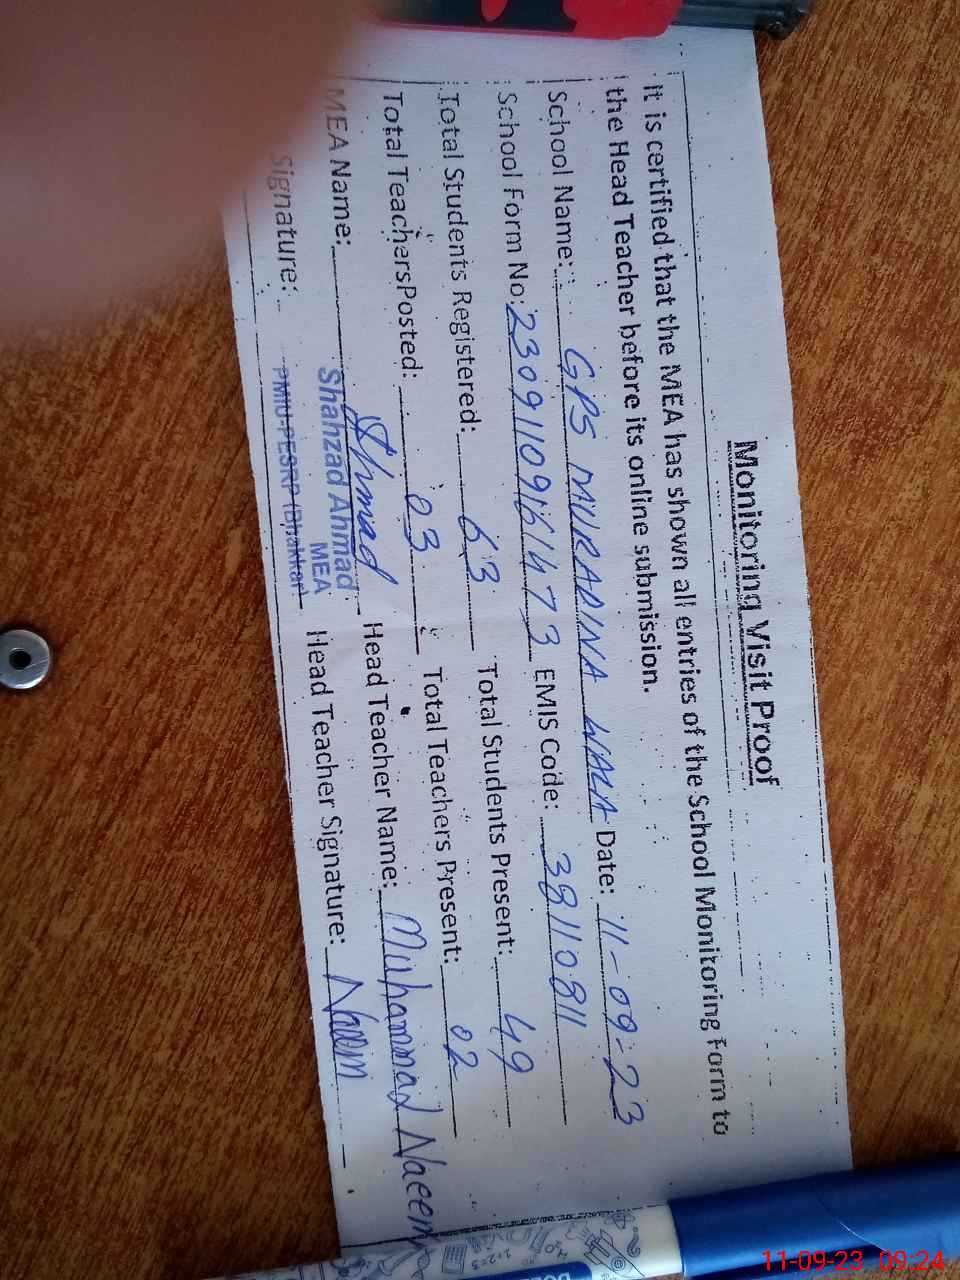 Monitoring Visit Proof
It is certified that the MEA has shown all entries of the School Monitoring Form to
the Head Teacher before its online submission.
School Name: GPS MURADINA WALA Date: 11-09-23
School Form No: 23091109161473 EMIS Code: 38110811
Total Students Registered: 63 Total Students Present: 49
Total TeachersPosted: 03 Total Teachers Present: 02
MEA Name: Ahmad Head Teacher Name: Muhammad Naeem
Shahzad Ahmad
MEA
Signature: PMIU-PESRP (Bhakkar) Head Teacher Signature: Naeem
11-09-23 09:24